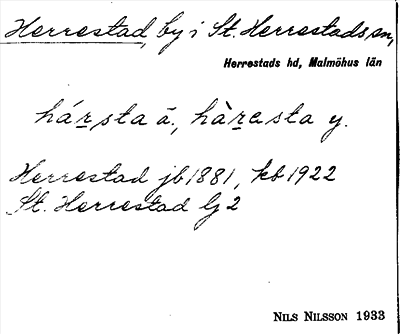 Herrestad, by i St. Herrestads sn,
Herrestads hd, Malmöhus län
hárs̱ta ä., hàṟasta y.
Herrestad jb 1881, kb 1922
St. Herrestad Gj 2
NILS NILSSON 1933